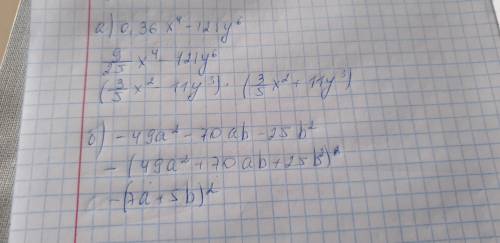 а) 0,36 x⁴ - 121y⁶
9/25 x⁴ - 121y⁶
(3/5 x² - 11y³) · (3/5 x² + 11y³)
б) - 49a² - 70 ab - 25 b²
- (49a² + 70 ab + 25b²)²
- (7a + 5b)²